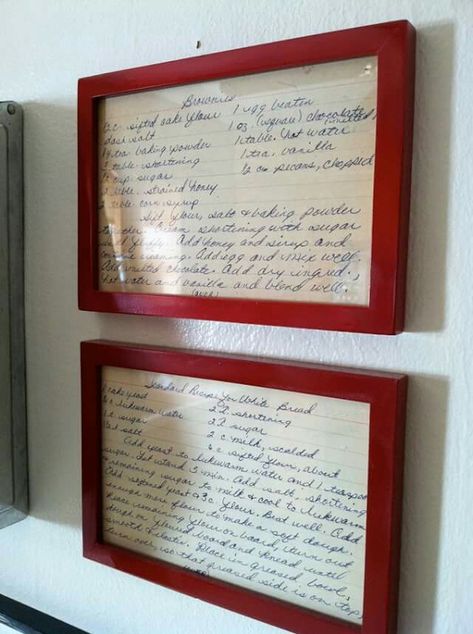 Brownies
c. sifted cake flour
dash salt
tea. baking powder
table. shortening
cup sugar
2 table. strained honey
2 table. corn syrup
1 egg beaten
1 oz (square) chocolate, melted
1 table. hot water
1 tea. vanilla
½ c. pecans, chopped
Sift flour, salt & baking powder
together. Cream shortening with sugar
until fluffy. Add honey and syrup and
continue creaming. Add egg and mix well.
Add melted chocolate. Add dry ingred.,
hot water and vanilla and blend well.
(over)
Standard Recipe For White Bread
1 cake yeast
c. lukewarm water
c. sugar
salt
2 T. shortening
2 T. sugar
2 c. milk, scalded
6 c. sifted flour, about
Add yeast to lukewarm water and 1 teaspoon
sugar. Let stand 5 min. Add salt, shortening
& remaining sugar to milk & cool to lukewarm.
Add softened yeast & 3 c. flour. Beat well. Add
enough more flour to make a soft dough.
Place remaining flour on board, turn out
dough on floured board and knead until
smooth & elastic. Place in greased bowl,
turn over, so that greased side is on top,